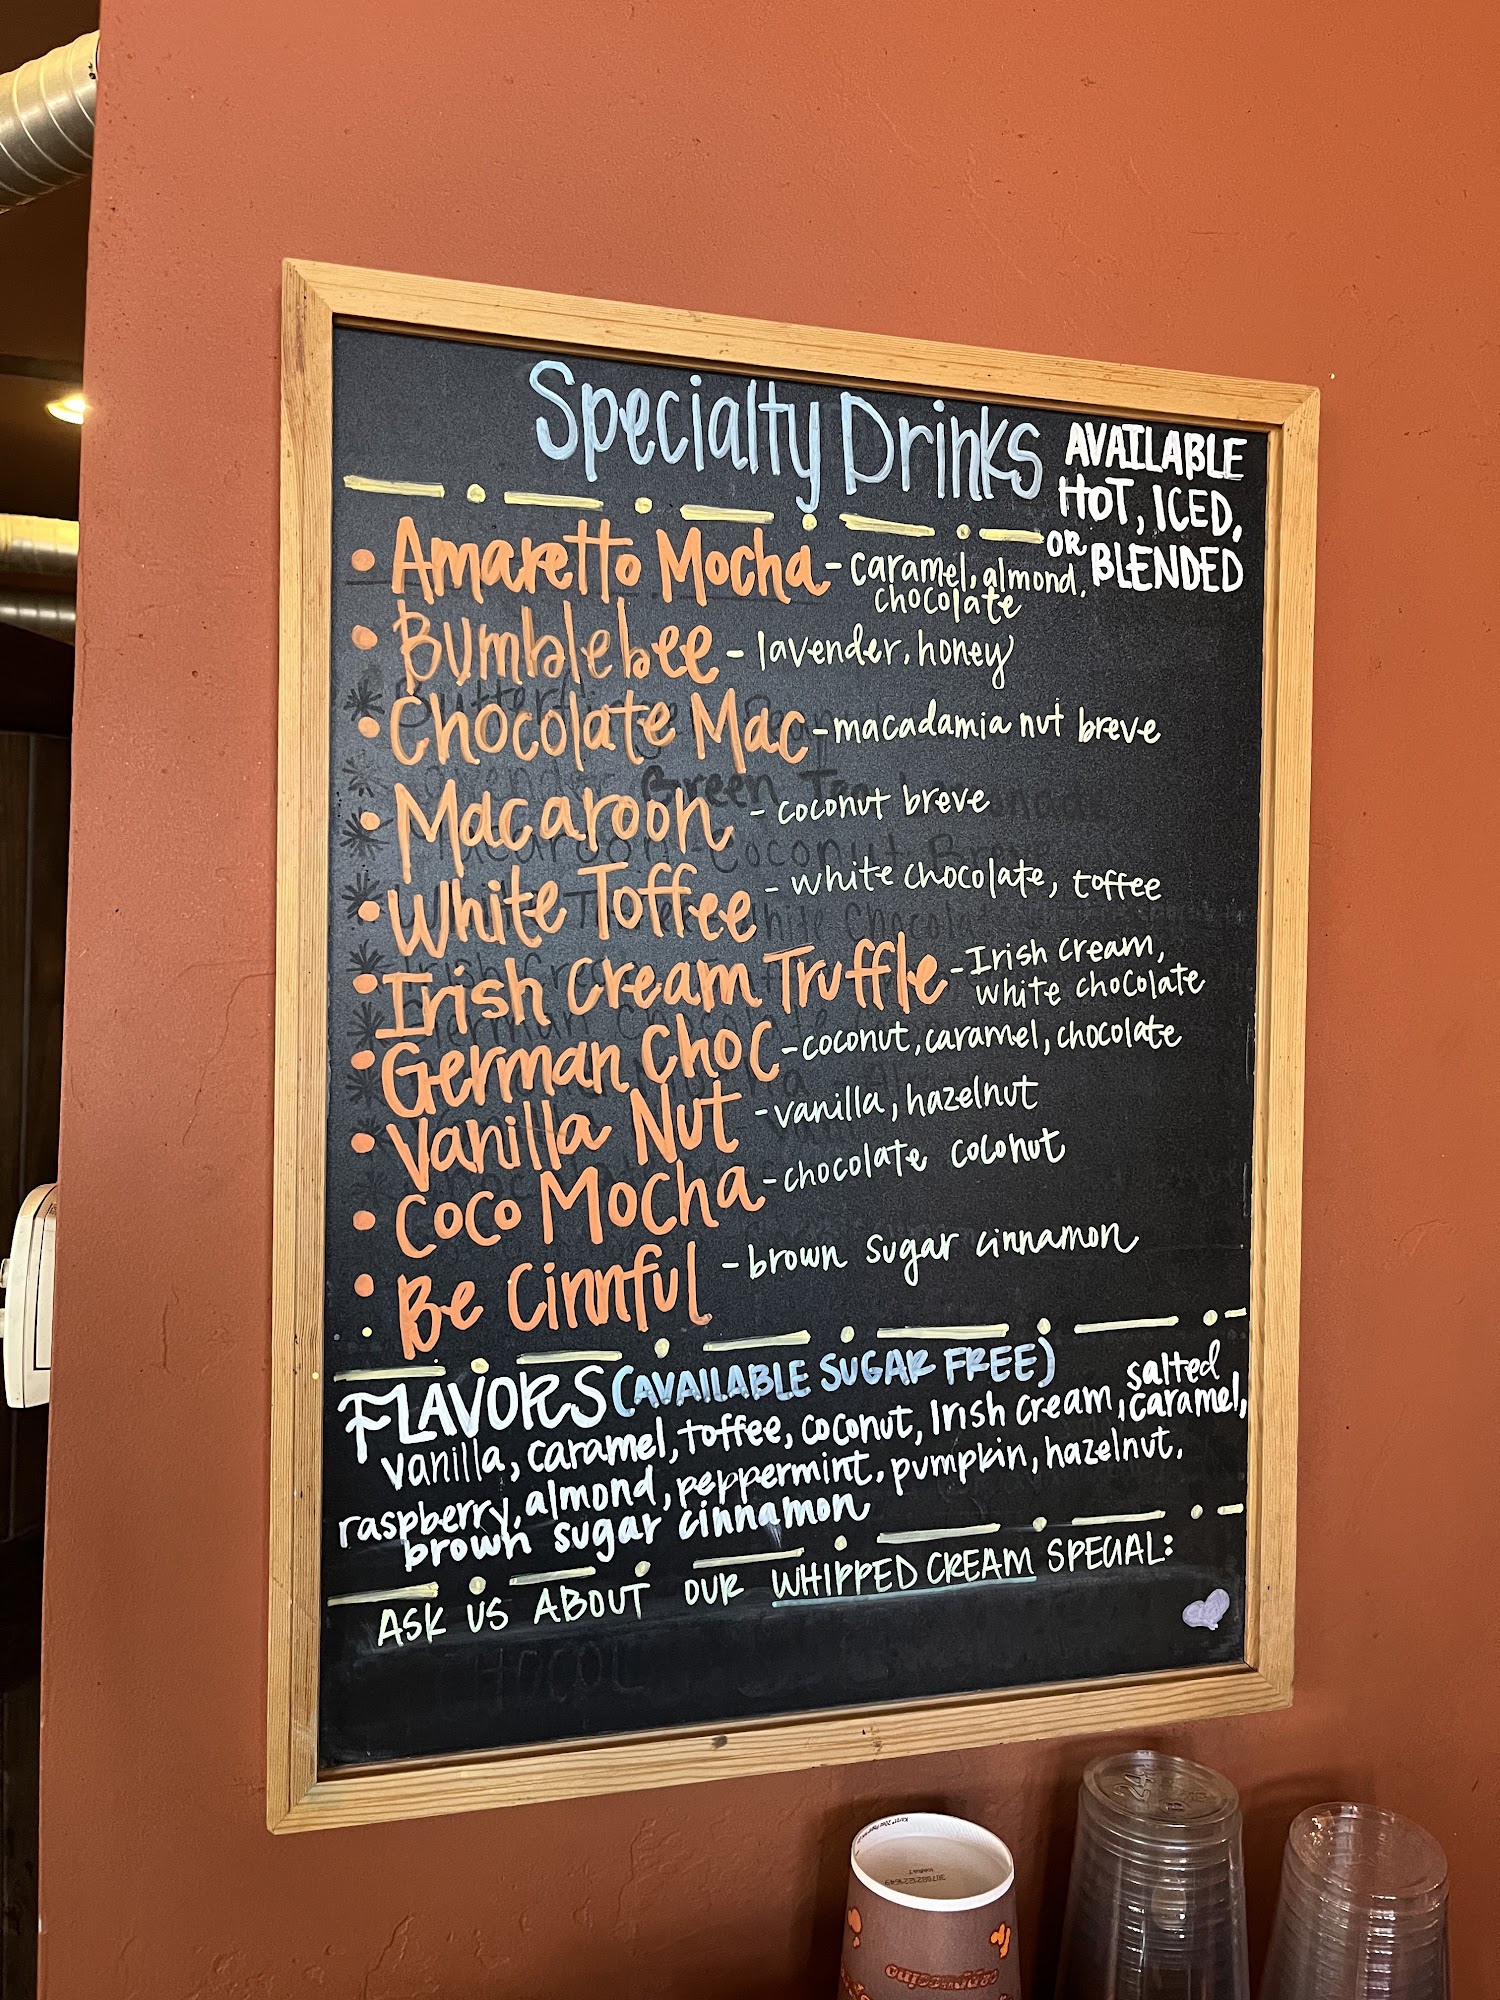 Specialty Drinks
AVAILABLE
HOT, ICED,
OR BLENDED
• Amaretto Mocha - caramel, almond,
chocolate
• Bumblebee - lavender, honey
• Chocolate Mac - macadamia nut breve
• Macaroon - coconut breve
• White Toffee - white chocolate, toffee
• Irish Cream Truffle - Irish cream,
white chocolate
• German Choc - coconut, caramel, chocolate
• Vanilla Nut - vanilla, hazelnut
• Coco Mocha - chocolate coconut
• Be Cinnful - brown sugar cinnamon
FLAVORS (AVAILABLE SUGAR FREE)
vanilla, caramel, toffee, coconut, Irish cream, salted caramel,
raspberry, almond, peppermint, pumpkin, hazelnut,
brown sugar cinnamon
ASK US ABOUT OUR WHIPPED CREAM SPECIAL:
24